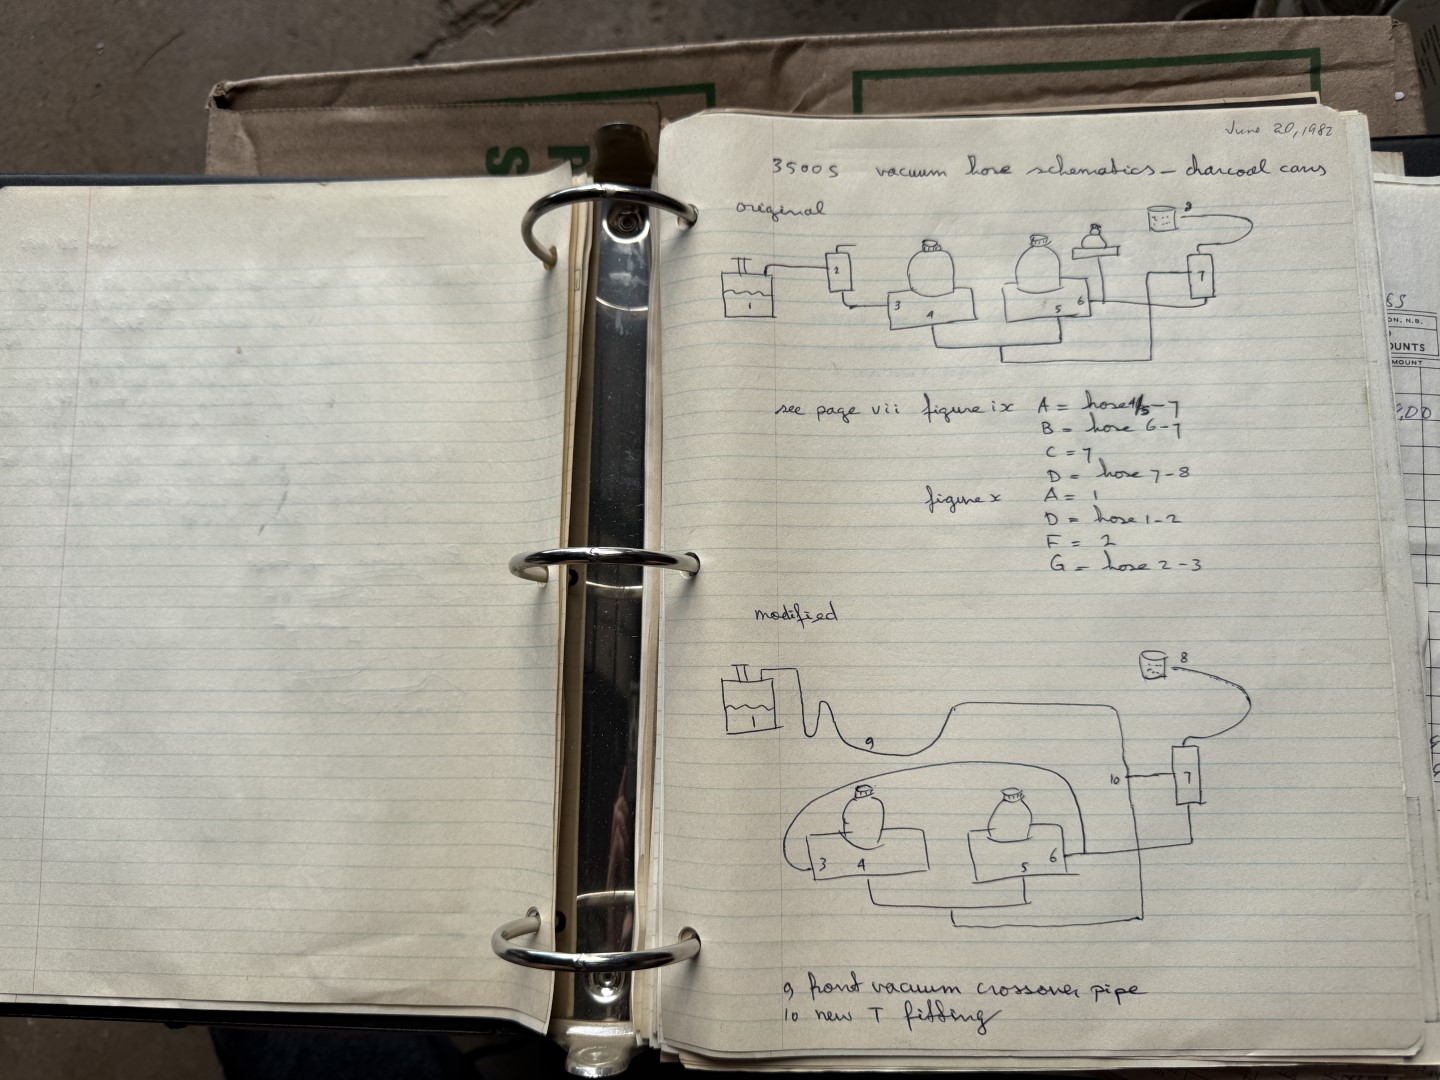 June 20, 1982
3500S vacuum hose schematics - charcoal cans
original
8
1
2
3
4
5
6
7
see page vii figure ix A = hose 4/5-7
B = hose 6-7
C = 7
D = hose 7-8
figure x A = 1
D = hose 1-2
F = 2
G = hose 2-3
modified
8
1
9
10
7
3
4
5
6
9 front vacuum crossover pipe
10 new T fitting
P
S
ON, N.B.
OUNTS
MOUNT